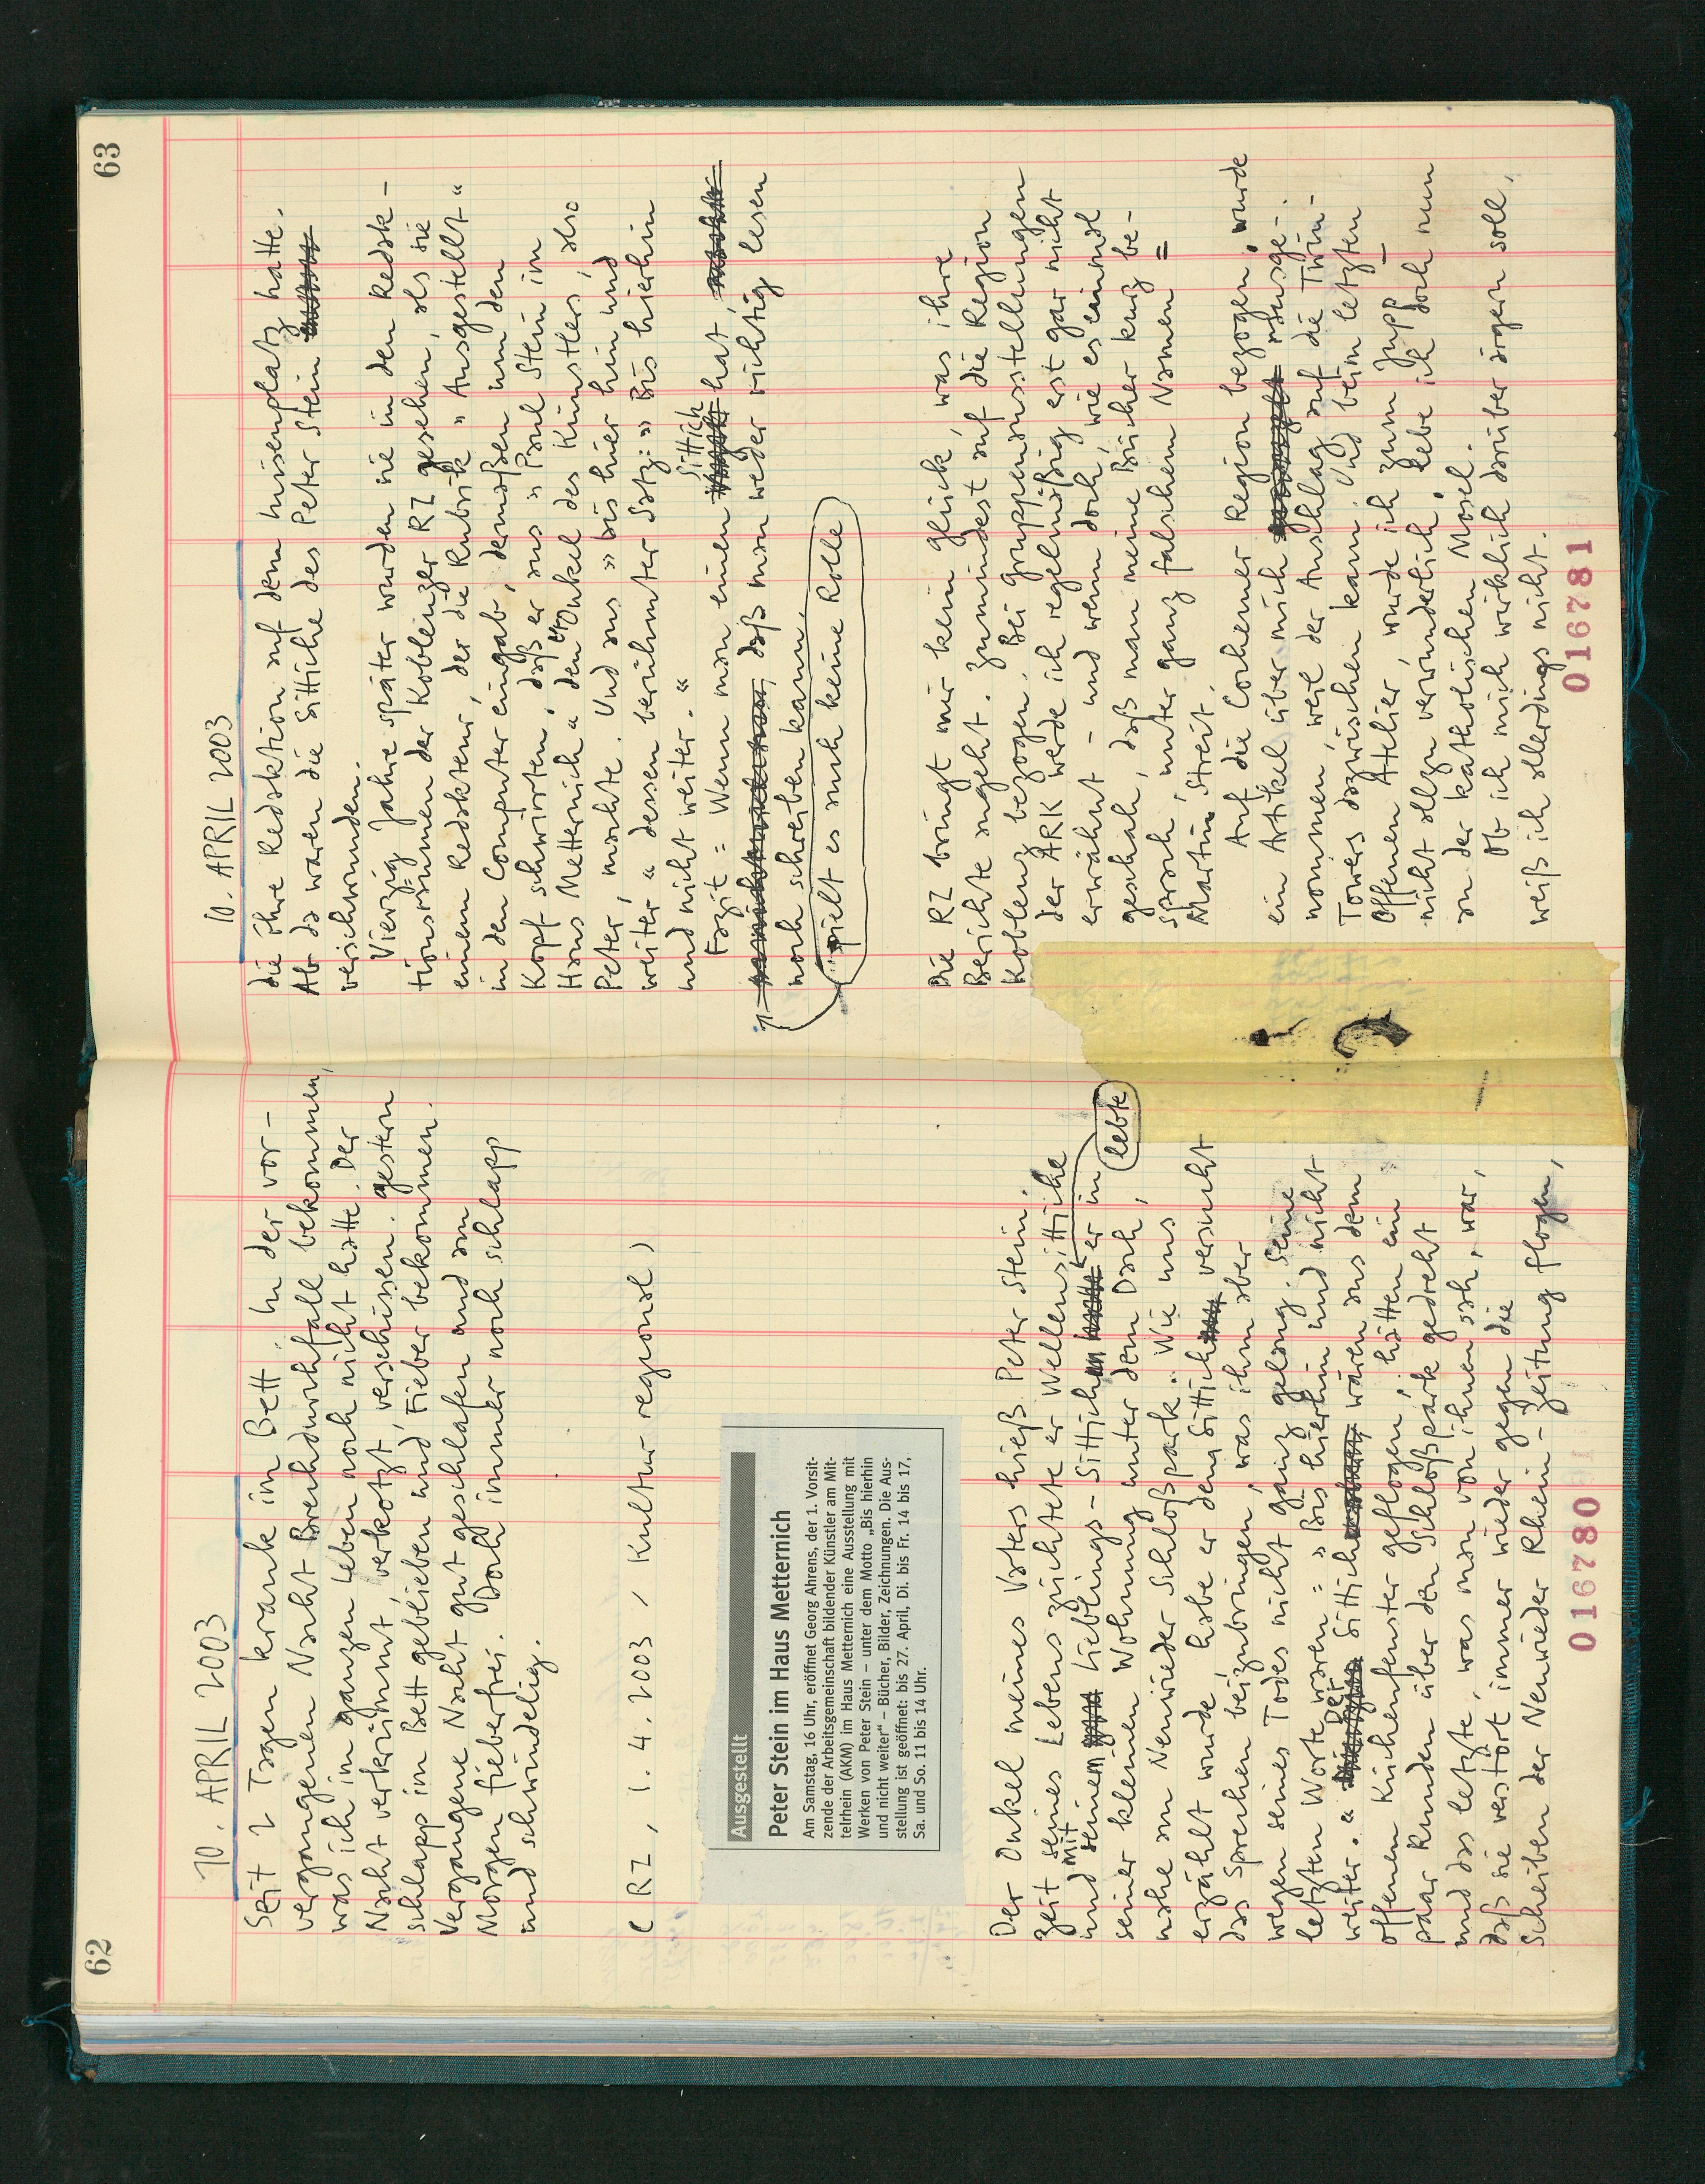 62
10. APRIL 2003
Seit 2 Tagen kranke im Bett. In der vor-
vergangenen Nacht Brechdurchfall bekommen,
was ich im ganzen Leben noch nicht hatte. Der
Nacht verkrümmt, verkotzt, verschissen. gestern
schlapp im Bett geblieben und Fieber bekommen.
Vergangene Nacht gut geschlafen und am
Morgen fieberfrei. Doch immer noch schlapp
und schwindelig.
( RZ, 1. 4. 2003, Kultur regional )
Ausgestellt
Peter Stein im Haus Metternich
Am Samstag, 16 Uhr, eröffnet Georg Ahrens, der 1. Vorsit-
zende der Arbeitsgemeinschaft bildender Künstler am Mit-
telrhein (AKM) im Haus Metternich eine Ausstellung mit
Werken von Peter Stein – unter dem Motto „Bis hierhin
und nicht weiter“ – Bücher, Bilder, Zeichnungen. Die Aus-
stellung ist geöffnet: bis 27. April, Di. bis Fr. 14 bis 17,
Sa. und So. 11 bis 14 Uhr.
Der Onkel meines Vaters hieß Peter Stein.
Zeit seines Lebens züchtete er Wellensittiche
und mit seinem Lieblings-Sittich er in
lebte
seiner kleinen Wohnung unter dem Dach,
nahe am Neuwieder Schloßpark. Wie uns
erzählt wurde, habe er dem Sittich versucht
das Sprechen beizubringen, was ihm aber
wegen seines Todes nicht ganz gelang. Seine
letzten Worte waren = » Bis hierhin und nicht
weiter. « Der Sittich wären aus dem
offenen Küchenfenster geflogen, hätten ein
paar Runden über den Schloßpark gedreht
und das letzte, was man von ihnen sah, war,
daß sie verstört immer wieder gegen die
Scheiben der Neuwieder Rhein-Zeitung flogen,
016780
63
10. APRIL 2003
die ihre Redaktion auf dem Luisenplatz hatte.
Ab da waren die Sittiche des Peter Stein
verschwunden.
Vierzig Jahre später wurden sie in den Redak-
tionsräumen der Koblenzer RZ gesehen, als sie
einen Redakteur, der die Rubrik » Ausgestellt «
in den Computer eingab, dermaßen um den
Kopf schwirrten, daß er aus » Paul Stein im
Haus Metternich « den Onkel des Künstlers, also
Peter, machte. Und aus » bis hier hin und
weiter « dessen berühmter Satz: » Bis hierhin
und nicht weiter. «
Fazit = Wenn man einen Sittich hat,
spielt es auch keine Rolle
daß man weder richtig lesen
noch schreiben kann.
Die RZ bringt mir kein Glück, was ihre
Berichte angeht. Zumindest auf die Region
Koblenz bezogen. Bei Gruppenausstellungen
der ARK werde ich regelmäßig erst gar nicht
erwähnt – und wenn doch, wie es einmal
geschah, daß man meine Bücher kurz be-
sprach, unter ganz falschem Namen =
Martin Streit.
Auf die Cochemer Region bezogen, wurde
ein Artikel über mich rausge-
nommen, weil der Anschlag auf die Twin-
Towers dazwischen kam. Und beim letzten
Offenen Atelier, wurde ich zum Jupp –
nicht allzu verwunderlich, lebe ich doch nun
an der katholischen Mosel.
Ob ich mich wirklich darüber ärgern soll,
weiß ich allerdings nicht.
016781